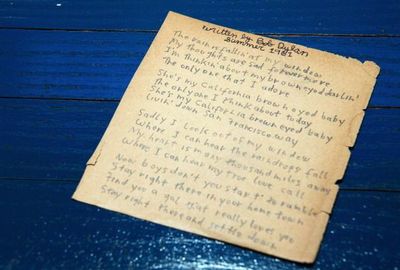 written by Bob Dylan
Summer 1961
The rain is fallin' at my window
My thoughts are sad forevermore
I'm thinkin' about my brown eyed darlin'
The only one that I adore
She's my California brown eyed baby
The only one I think about today
She's my California brown eyed baby
Livin' down San Francisco way
Sadly I look out of my window
Where I can hear the raindrops fall
My heart is many thousand miles away
Where I can hear my true love call
Now boys don't you start to ramble
Stay right there in your home town
Find you a gal that really loves you
Stay right there and settle down